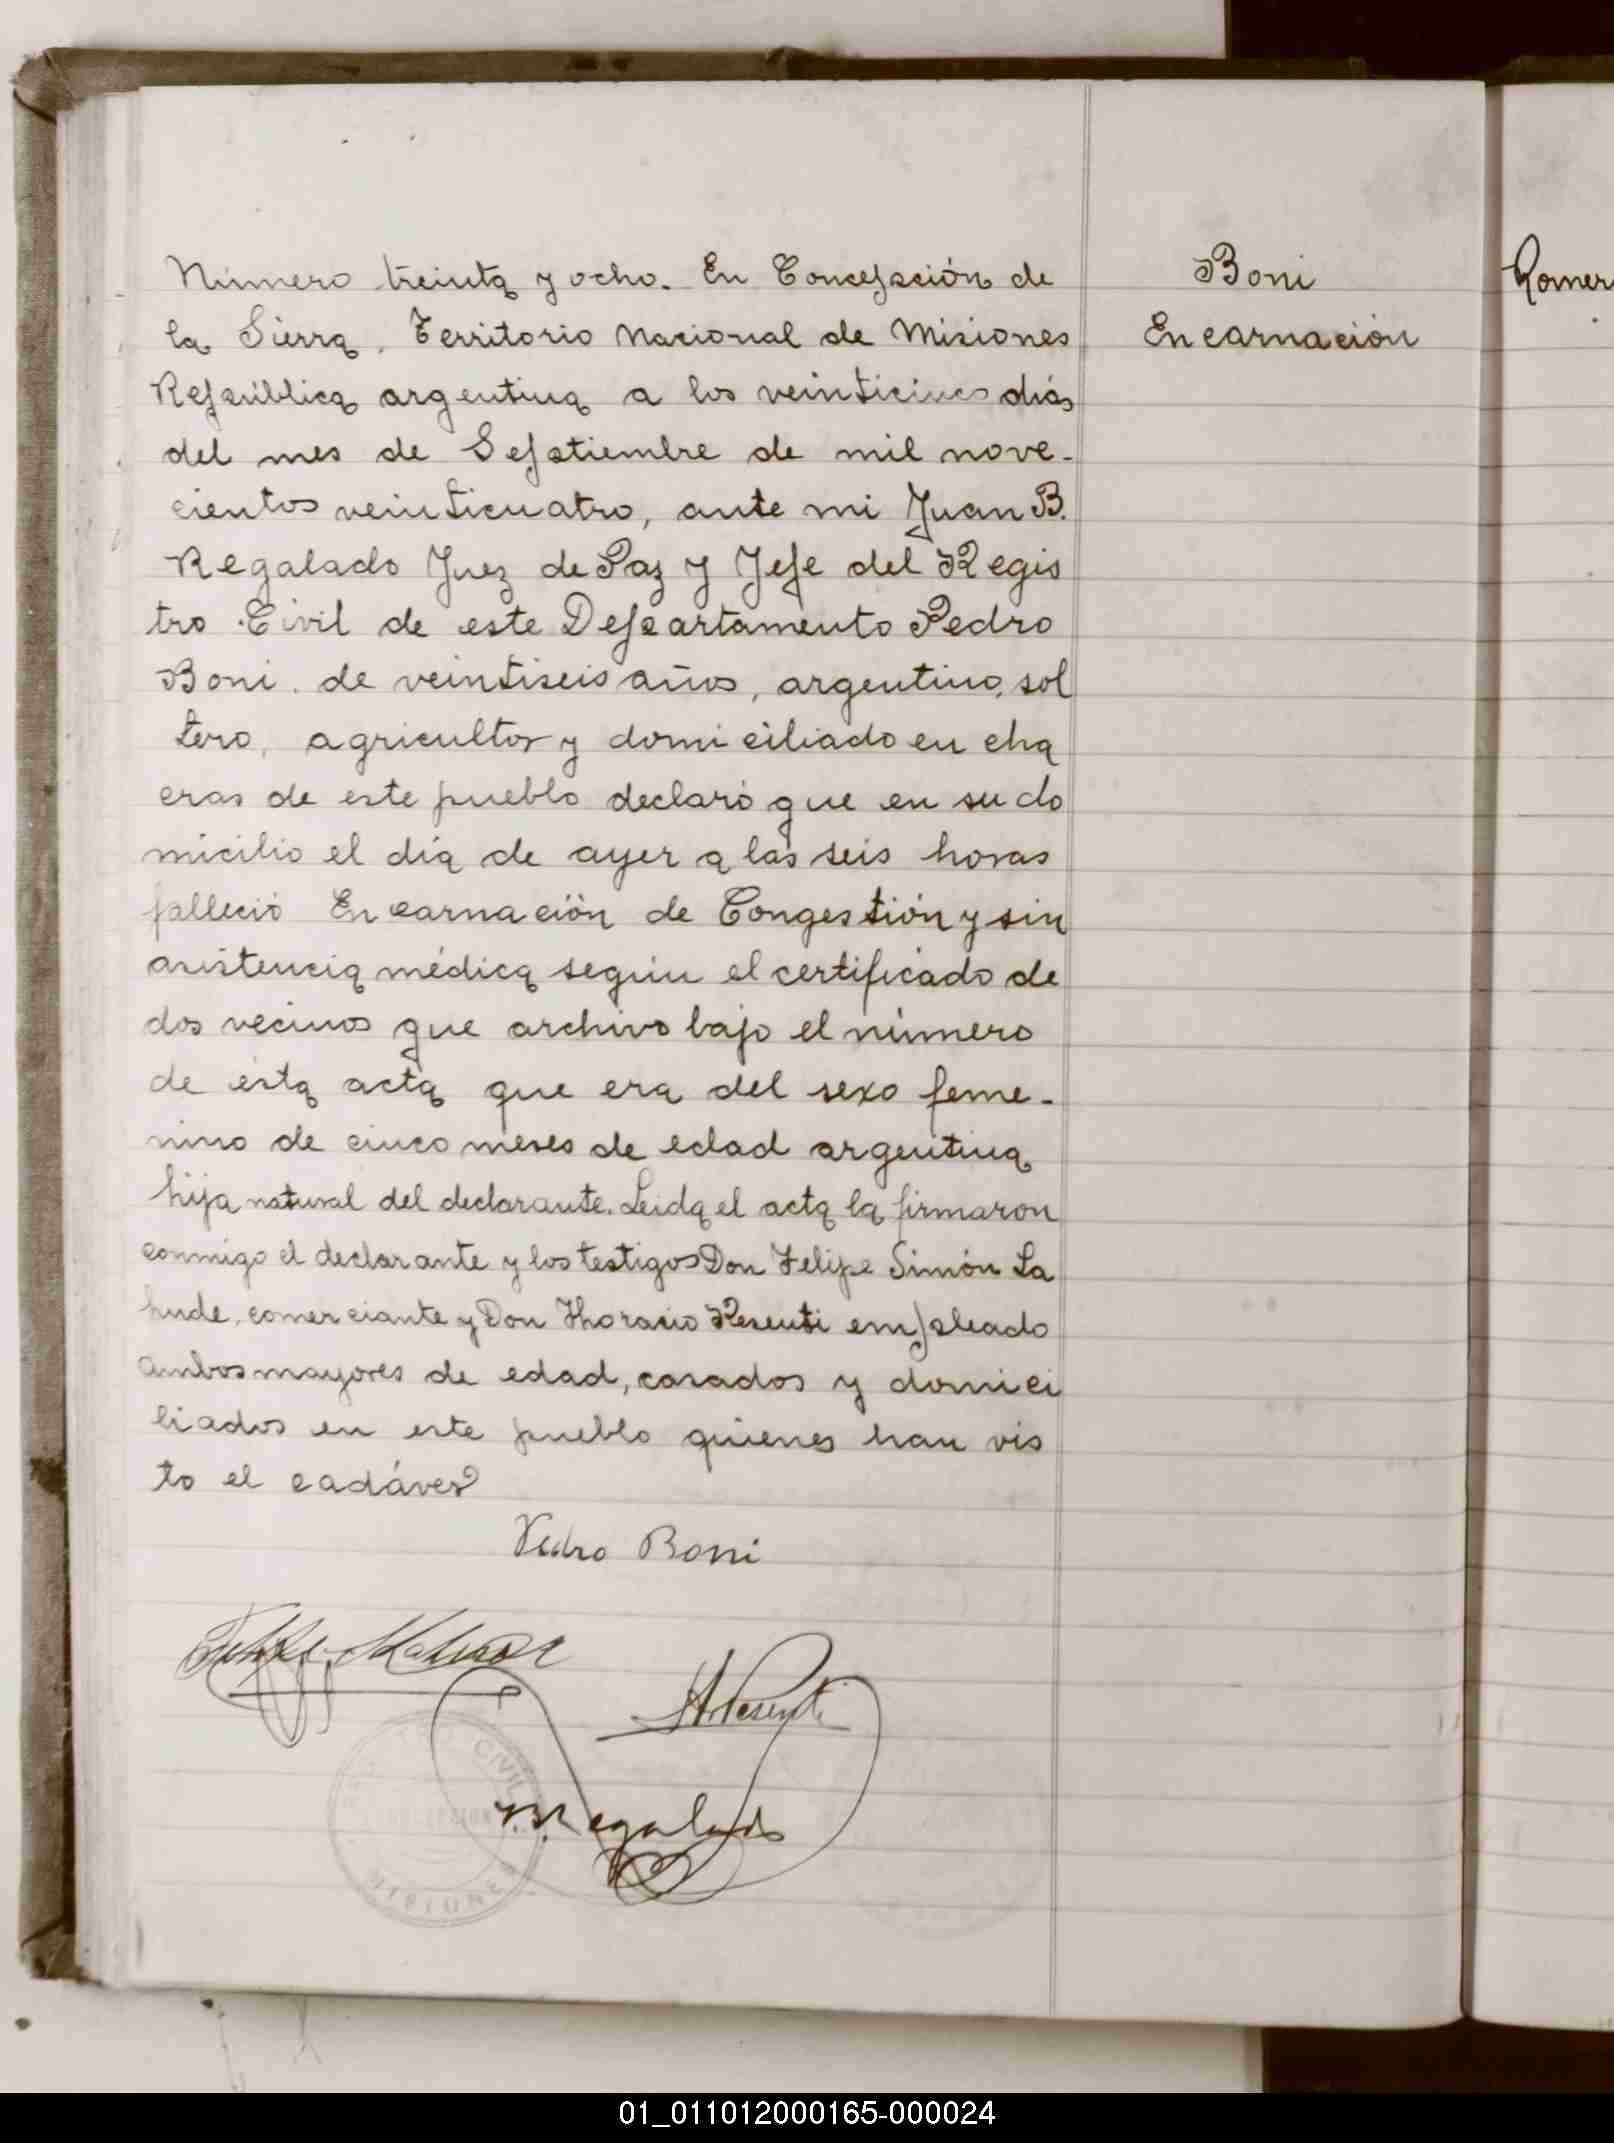 Número treinta y ocho. En Concepción de
la Sierra, Territorio Nacional de Misiones
República argentina a los veinticinco días
del mes de Septiembre de mil nove-
cientos veinticuatro, ante mi Juan B.
Regalado Juez de Paz y Jefe del Regis
tro Civil de este Departamento Pedro
Boni. de veintiseis años, argentino, sol
tero, agricultor y domiciliado en cha
cras de este pueblo declaró que en su do
micilio el día de ayer a las seis horas
falleció Encarnación de Congestión y sin
asistencia médica según el certificado de
dos vecinos que archivo bajo el número
de ésta acta que era del sexo feme-
nino de cinco meses de edad argentina
hija natural del declarante. Leida el acta la firmaron
conmigo el declarante y los testigos Don Felipe Simón La
hude, comerciante y Don Horacio Resenti empleado
ambos mayores de edad, casados y domici
liados en este pueblo quienes han vis
to el cadáver
Boni
Encarnación
Romer
Pedro Boni
J.B. Regalado
CIVIL
MISIONES
01_011012000165-000024